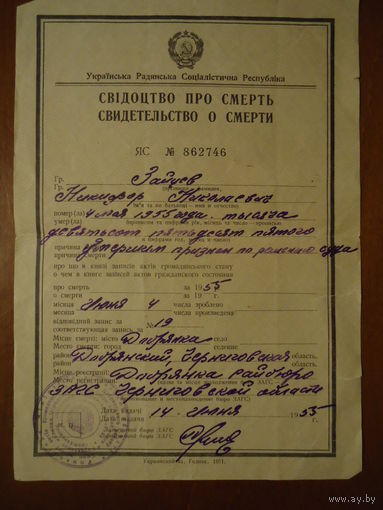 Українська Радянська Соціалістична Республіка
СВІДОЦТВО ПРО СМЕРТЬ
СВИДЕТЕЛЬСТВО О СМЕРТИ
ЯС № 862746
Гр. Зайцев
Гр.
Николаевич
ім'я та по батькові — имя и отчество
помер (ла) 4 мая 1955 года. тысяча
умер (ла)
девятьсот пятьдесят пятого
причина
причина смерти признан по решению суда
про що в книзі записів актів громадянського стану
о чем в книге записей актов гражданского состояния
про смерть за 1955 р.
о смерти за 19 г.
місяця Июня 4 числа зроблено
месяца числа произведена
відповідний запис за № 19
соответствующая запись за
Місце смерті: місто Добрянка село
Место смерти: город селение
район Добрянский, Черниговская область,
район область.
Місце реєстрації Добрянка райбюро
Место регистрации
ЗАГС Черниговской области
Дата видачі 14 Июня 1955 р.
Дата выдачи г.
Завідуючий бюро ЗАГС
Заведующий бюро ЗАГС
ay.by